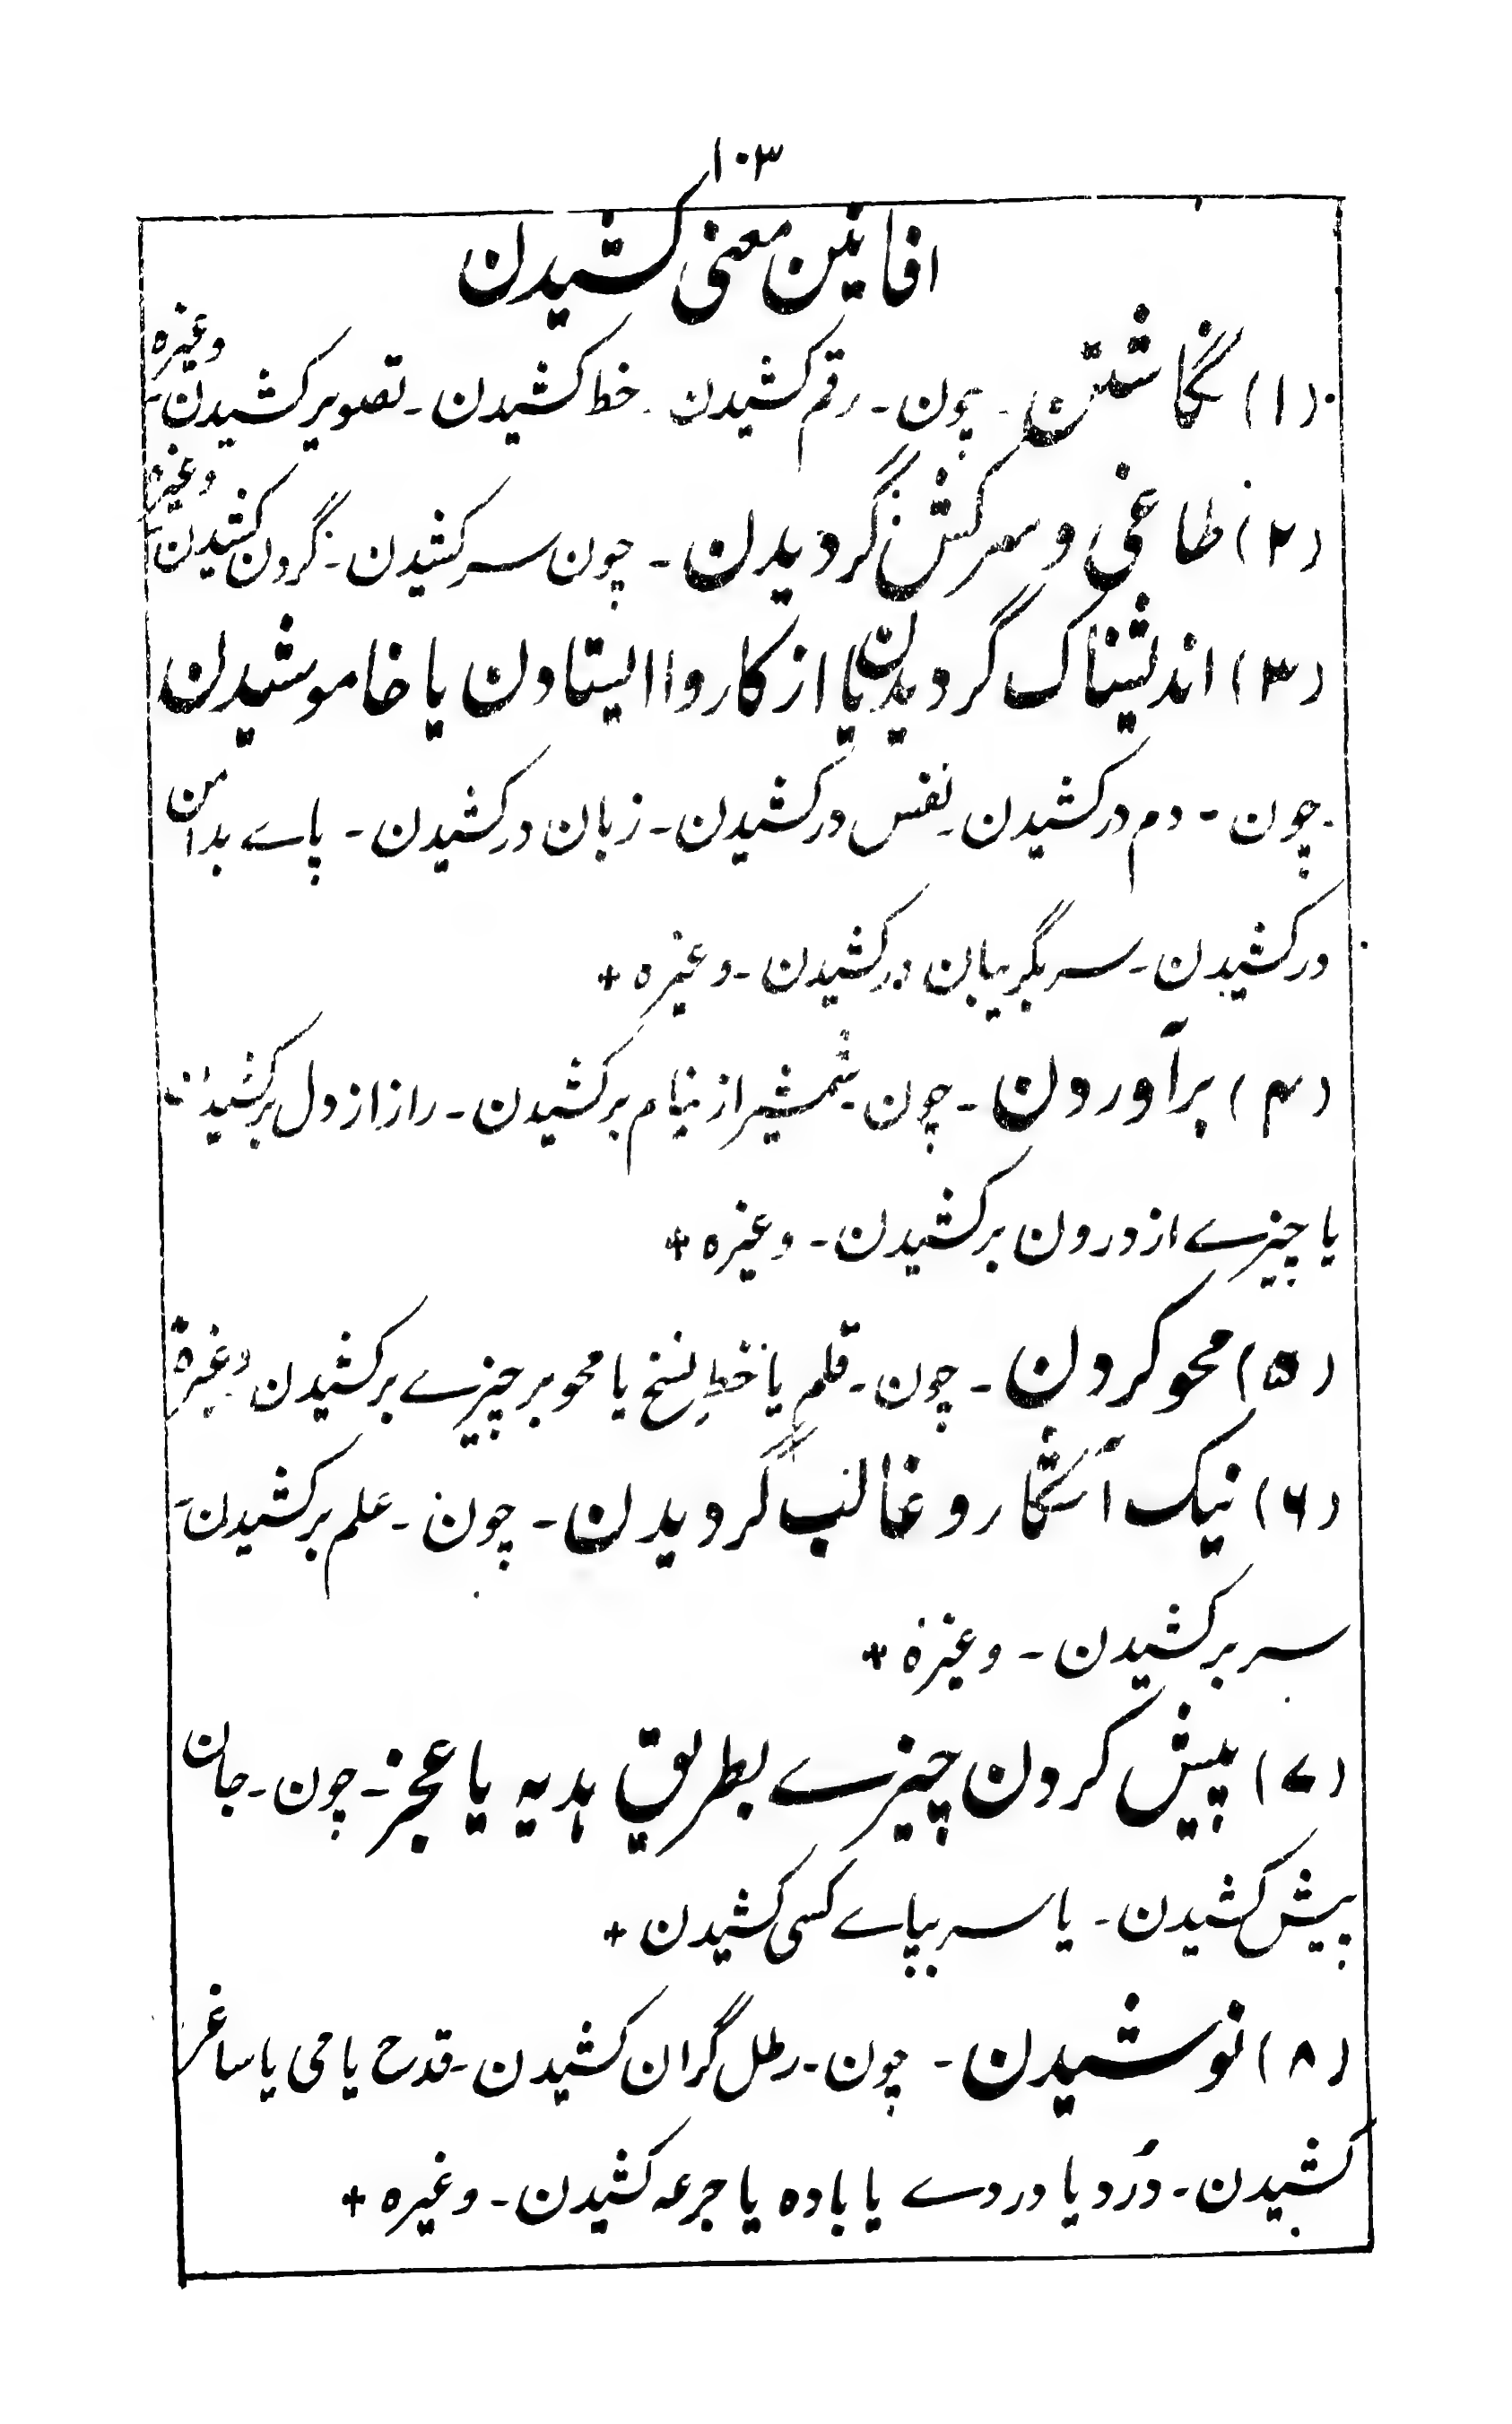 ۱۰۳
افانین معنی کشیدن
(۱) نگاشتن - چون - رقم کشیدن - خط کشیدن - تصویر کشیدن - وغیره
(۲) طاغی و سرکش گردیدن - چون سر کشیدن - گردن کشیدن - وغیره
(۳) اندیشناک گردیدن یا از کار وا ایستادن یا خاموشیدن
چون - دم در کشیدن - نفس در کشیدن - زبان در کشیدن - پاے بدامن
در کشیدن - سر بگریبان در کشیدن - وغیره +
(۴) برآوردن - چون - شمشیر از نیام برکشیدن - راز از دل برکشیدن
یا چیزے از درون برکشیدن - وغیره +
(۵) محو کردن - چون - قلم یا خطِ نسخ یا محو بر چیزے برکشیدن وغیره
(۶) نیک آشکار و غالب گردیدن - چون - علم برکشیدن -
سر برکشیدن - وغیره +
(۷) پیش کردن چیزے بطریق ہدیہ یا عجز - چون - جان
پیش کشیدن - یا سر بپاے کسی کشیدن +
(۸) نوشیدن - چون - رطل گران کشیدن - قدح یا می یا ساغر
کشیدن - دُرد یا دردے یا باده یا جرعہ کشیدن - وغیره +